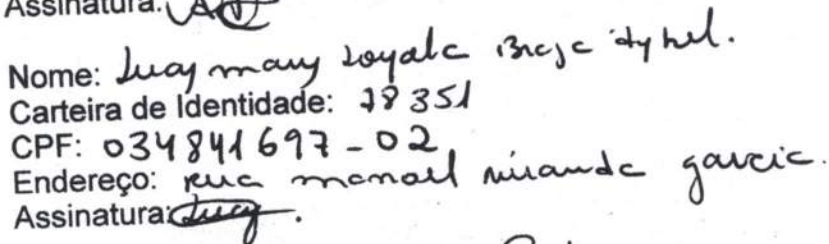 Assinatura:
Nome: Lucy mary Loyala
Carteira de Identidade: 18351
CPF: 034841697-02
Endereço: rua manoel miranda garcia.
Assinatura: Lucy.